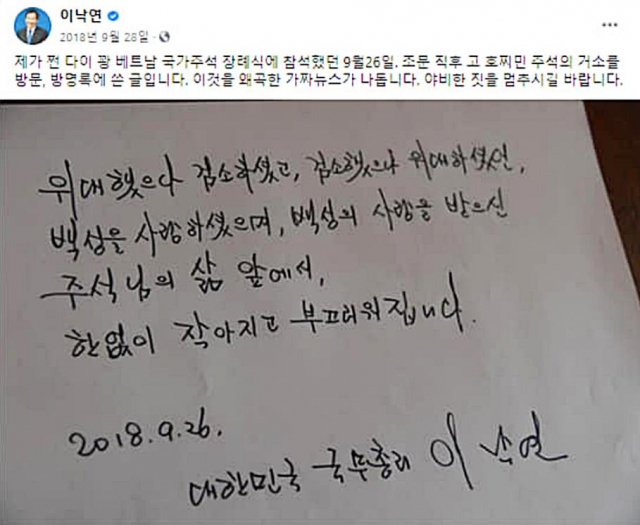 이낙연
2018년 9월 28일
제가 쩐 다이 꽝 베트남 국가주석 장례식에 참석했던 9월26일. 조문 직후 고 호찌민 주석의 거소를
방문, 방명록에 쓴 글입니다. 이것을 왜곡한 가짜뉴스가 나돕니다. 야비한 짓을 멈추시길 바랍니다.
위대했으나 검소하셨고, 검소했으나 위대하셨던,
백성을 사랑하셨으며, 백성의 사랑을 받으신
주석님의 삶 앞에서,
한없이 작아지고 부끄러워집니다.
2018.9.26.
대한민국 국무총리 이낙연